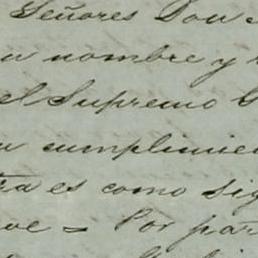 Señores Don
nombre y
el Supremo
cumplimien
es como sig
Por par